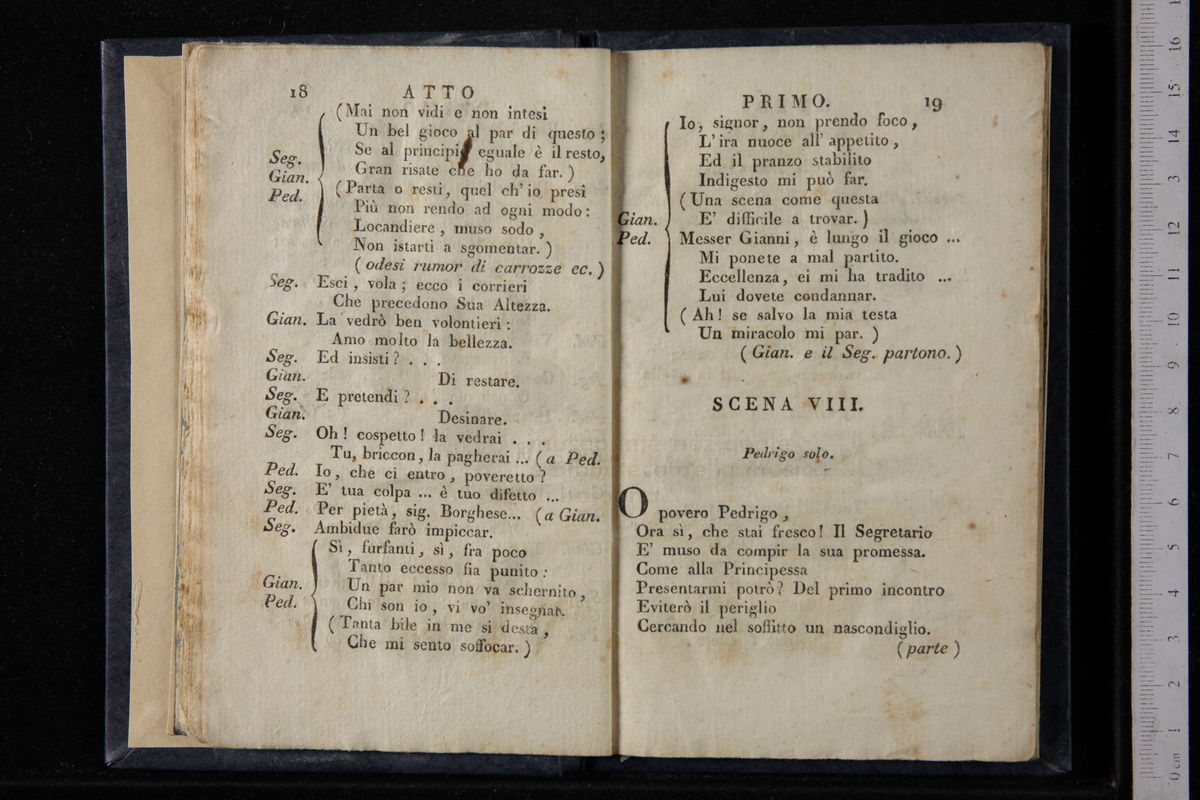 18 ATTO
(Mai non vidi e non intesi
Un bel gioco al par di questo ;
Seg. Se al principio eguale è il resto,
Gian. Gran risate che ho da far. )
Ped. (Parta o resti, quel ch' io presi
Più non rendo ad ogni modo :
Locandiere, muso sodo ,
Non istarti a sgomentar. )
( odesi rumor di carrozze ec. )
Seg. Esci, vola ; ecco i corrieri
Che precedono Sua Altezza.
Gian. La vedrò ben volontieri :
Amo molto la bellezza.
Seg. Ed insisti ? . . .
Gian. Di restare.
Seg. E pretendi ? . . .
Gian. Desinare.
Seg. Oh ! cospetto ! la vedrai . . .
Tu, briccon, la pagherai ... ( a Ped.
Ped. Io, che ci entro, poveretto ?
Seg. E' tua colpa ... è tuo difetto ...
Ped. Per pietà, sig. Borghese... (a Gian.
Seg. Ambidue farò impiccar.
Sì, furfanti, sì, fra poco
Tanto eccesso fia punito :
Gian. Un par mio non va schernito,
Ped. Chi son io, vi vo' insegnar.
( Tanta bile in me si desta ,
Che mi sento soffocar. )
PRIMO. 19
Io, signor, non prendo foco ,
L' ira nuoce all' appetito ,
Ed il pranzo stabilito
Indigesto mi può far.
(Una scena come questa
Gian. E' difficile a trovar. )
Ped. Messer Gianni, è lungo il gioco ...
Mi ponete a mal partito.
Eccellenza, ei mi ha tradito ...
Lui dovete condannar.
( Ah ! se salvo la mia testa
Un miracolo mi par. )
( Gian. e il Seg. partono. )
SCENA VIII.
Pedrigo solo.
O povero Pedrigo ,
Ora sì, che stai fresco! Il Segretario
E' muso da compir la sua promessa.
Come alla Principessa
Presentarmi potrò? Del primo incontro
Eviterò il periglio
Cercando nel soffitto un nascondiglio.
(parte )
0 cm 1 2 3 4 5 6 7 8 9 10 11 12 13 14 15 16